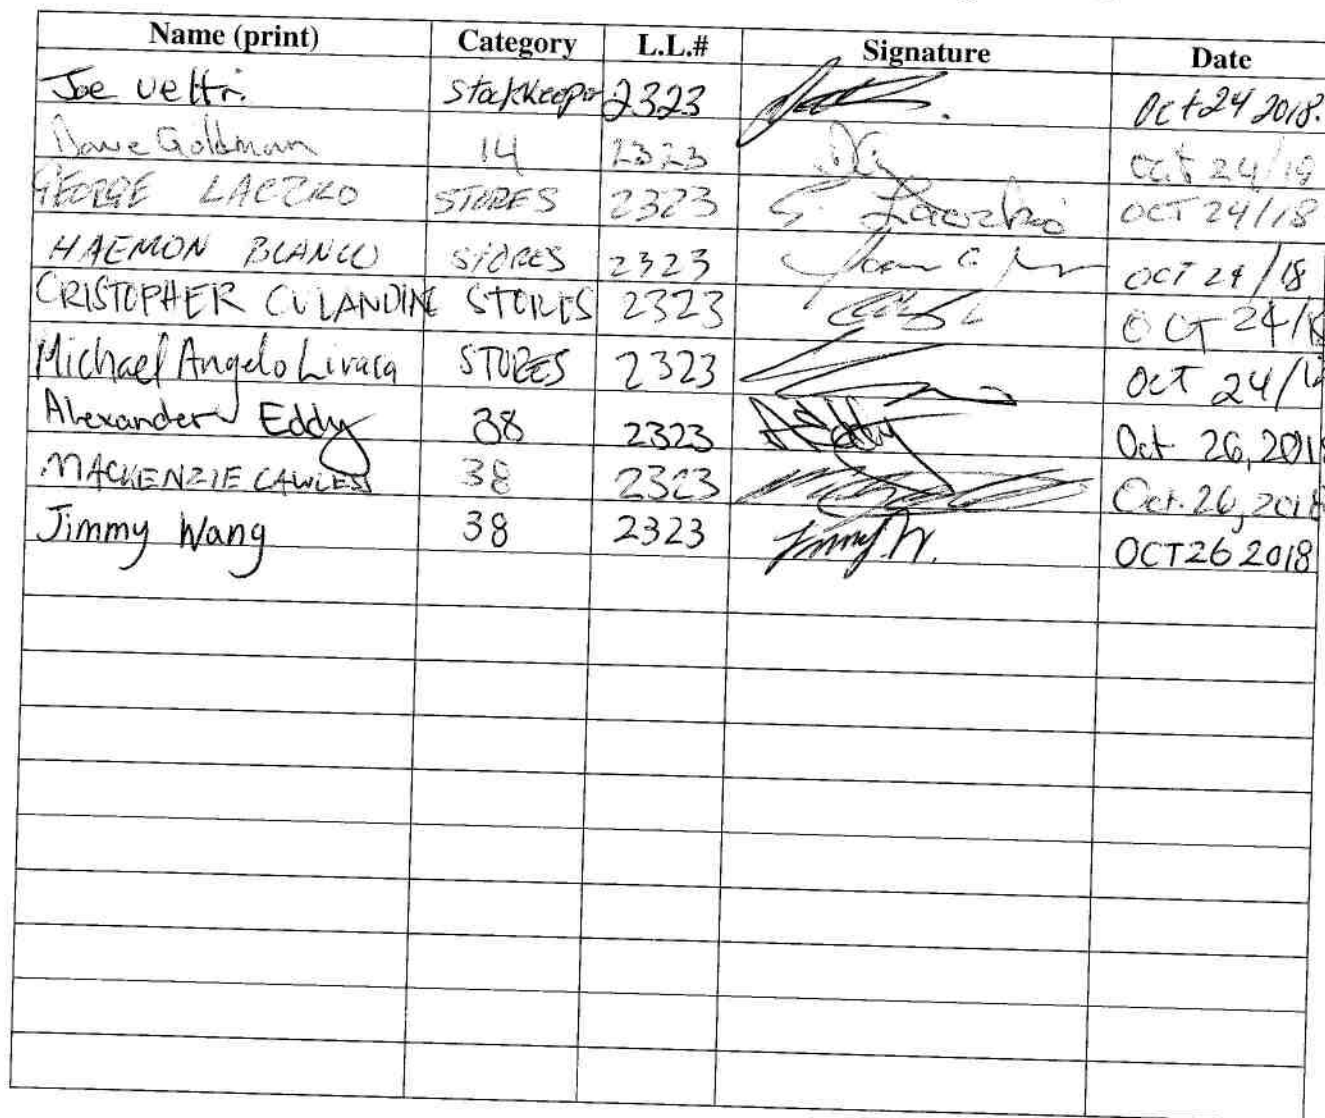 Name (print) Category L.L.# Signature Date
Joe Vettri Stockkeeper 2323 Oct 24 2018.
Dave Goldman 14 2323 DG Oct 24/18
GEORGE LACZKO STORES 2323 G. Laczko OCT 24/18
HAEMON BLANCO STORES 2323 OCT 24/18
CRISTOPHER CULANDINE STORES 2323 OCT 24/18
Michael Angelo STORES 2323 OCT 24/18
Alexander Eddy 38 2323 AEddy Oct 26, 2018
MACKENZIE CAWLESS 38 2323 Oct. 26, 2018
Jimmy Wang 38 2323 Jimmy W. OCT 26 2018